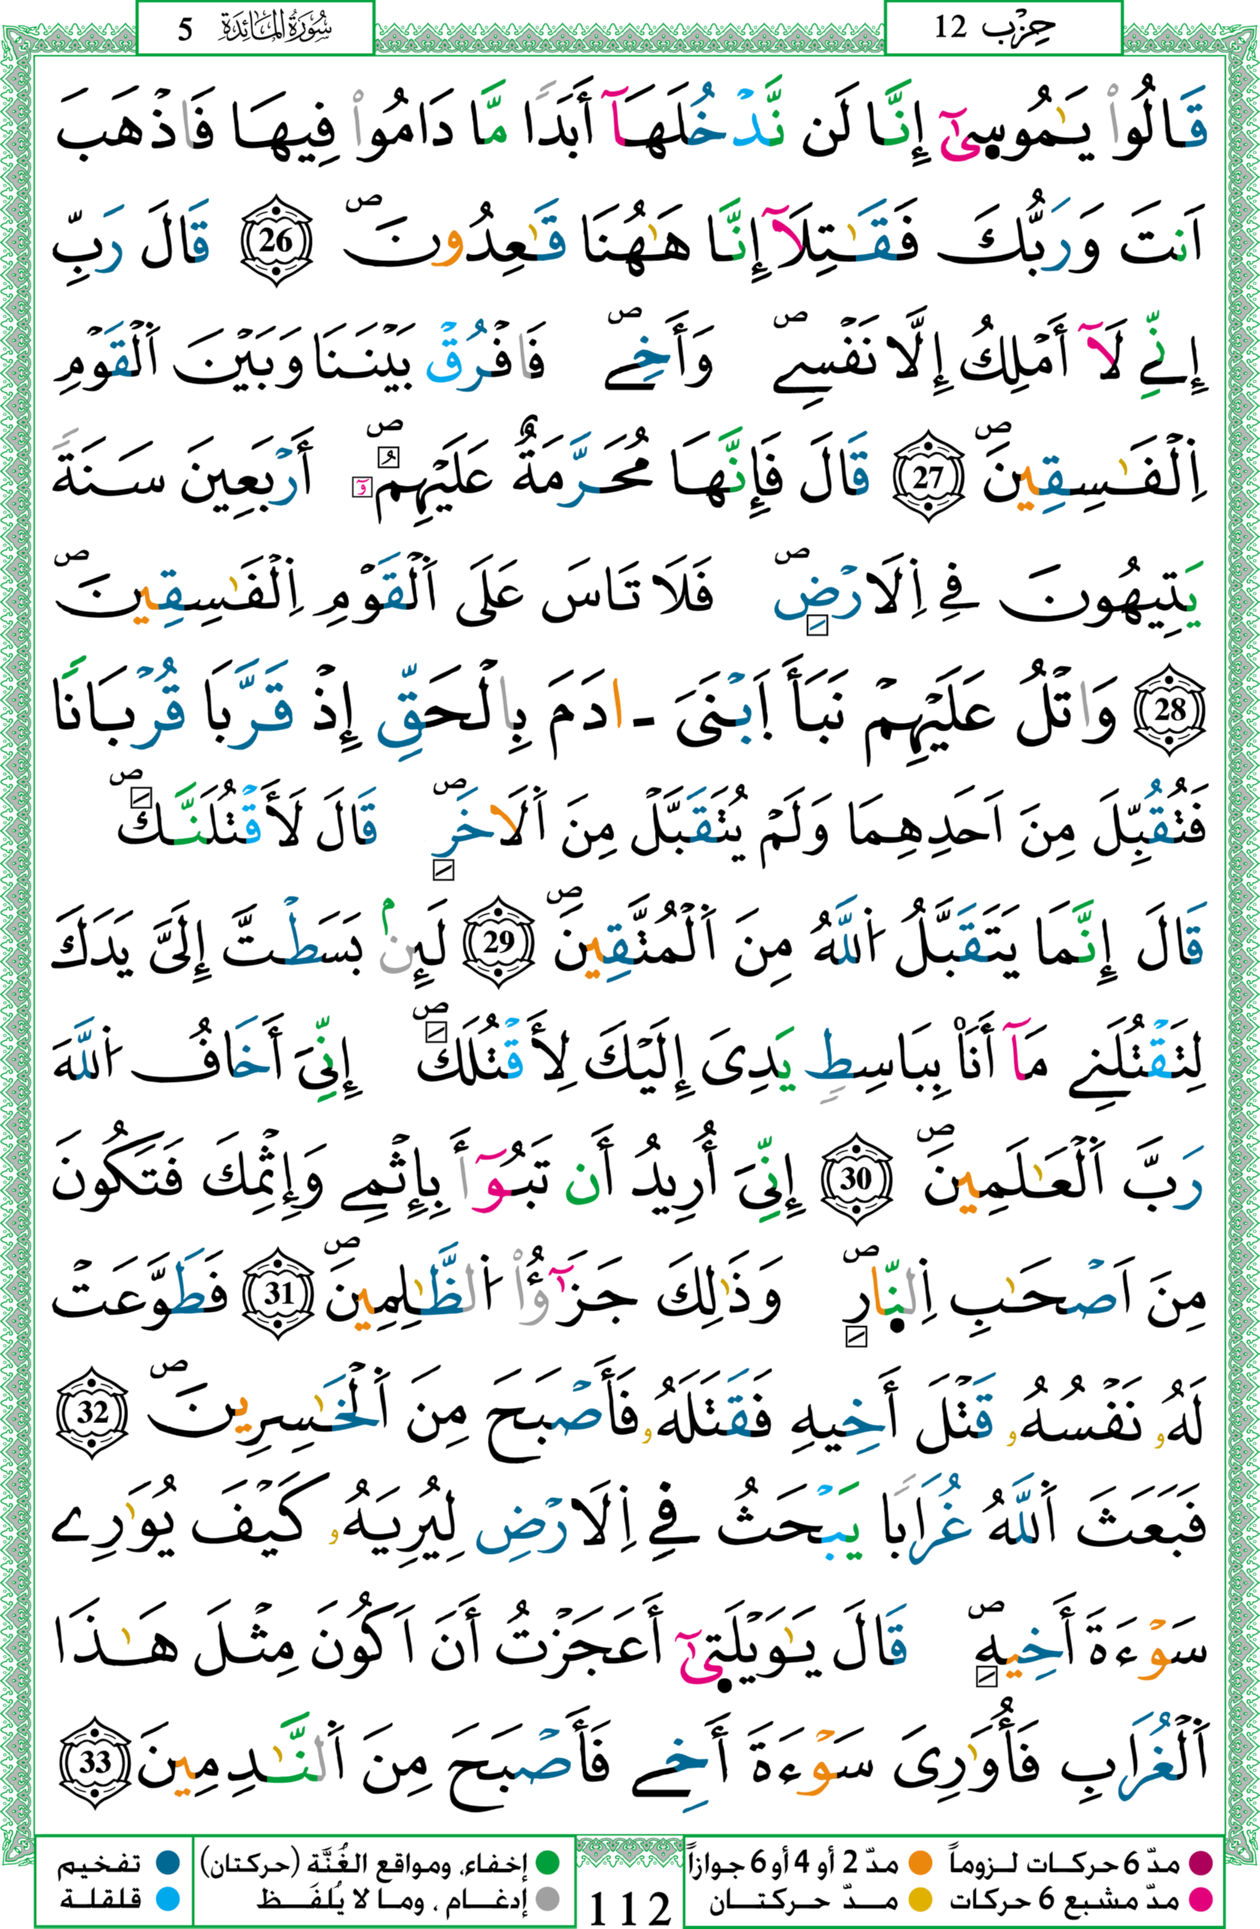 حِزْب 12
سُورَةُ المَائِدَة 5
قَالُواْ يَٰمُوسِىٰٓ إِنَّا لَن نَّدْخُلَهَآ أَبَدًا مَّا دَامُواْ فِيهَا فَاذْهَبَ
اَنتَ وَرَبُّكَ فَقَٰتِلَآ إِنَّا هَٰهُنَا قَٰعِدُونَۖ 26 قَالَ رَبِّ
إِنِّے لَآ أَمْلِكُ إِلَّا نَفْسِےۖ وَأَخِےۖ فَافْرُقْ بَيْنَنَا وَبَيْنَ اَ۬لْقَوْمِ
اِ۬لْفَٰسِقِينَۖ 27 قَالَ فَإِنَّهَا مُحَرَّمَةٌ عَلَيْهِمُۥٓۖ أَرْبَعِينَ سَنَةً
يَتِيهُونَ فِے اِ۬لَارْضِۖ فَلَا تَاسَ عَلَى اَ۬لْقَوْمِ اِ۬لْفَٰسِقِينَۖ
28 وَاتْلُ عَلَيْهِمْ نَبَأَ اَ۪بْنَىَ ـادَمَ بِالْحَقِّ إِذْ قَرَّبَا قُرْبَانًا
فَتُقُبِّلَ مِنَ اَحَدِهِمَا وَلَمْ يُتَقَبَّلْ مِنَ اَ۬لَاخَرِۖ قَالَ لَأَقْتُلَنَّكَۖ
قَالَ إِنَّمَا يَتَقَبَّلُ اُ۬للَّهُ مِنَ اَ۬لْمُتَّقِينَۖ 29 لَئِنۢ بَسَطتَّ إِلَىَّ يَدَكَ
لِتَقْتُلَنِے مَآ أَنَا۠ بِبَاسِطٍ يَدِىَ إِلَيْكَ لِأَقْتُلَكَۖ إِنِّىَ أَخَافُ اُ۬للَّهَ
رَبَّ اَ۬لْعَٰلَمِينَۖ 30 إِنِّىَ أُرِيدُ أَن تَبُوٓأَ بِإِثْمِے وَإِثْمِكَ فَتَكُونَ
مِنَ اَصْحَٰبِ اِ۬لنّ۪ارِۖ وَذَٰلِكَ جَزَٰٓؤُاْ اُ۬لظَّٰلِمِينَۖ 31 فَطَوَّعَتْ
لَهُۥ نَفْسُهُۥ قَتْلَ أَخِيهِ فَقَتَلَهُۥ فَأَصْبَحَ مِنَ اَ۬لْخَٰسِرِينَۖ 32
فَبَعَثَ اَ۬للَّهُ غُرَابًا يَبْحَثُ فِے اِ۬لَارْضِ لِيُرِيَهُۥ كَيْفَ يُوَٰرِے
سَوْءَةَ أَخِيهِۖ قَالَ يَٰوَيْلَت۪ىٰٓ أَعَجَزْتُ أَنَ اَكُونَ مِثْلَ هَٰذَا
اَ۬لْغُرَابِ فَأُوَٰرِىَ سَوْءَةَ أَخِے فَأَصْبَحَ مِنَ اَ۬لنَّٰدِمِينَ 33
مدّ 6 حركات لـزوماً مدّ 2 أو 4 أو 6 جوازاً
مدّ مشبع 6 حركات مــدّ حـركتــان
إخفاء، ومواقع الغُنَّة (حركتان) تفخيم
إدغـام ، ومـا لا يُلفَـظ قلقلة
112